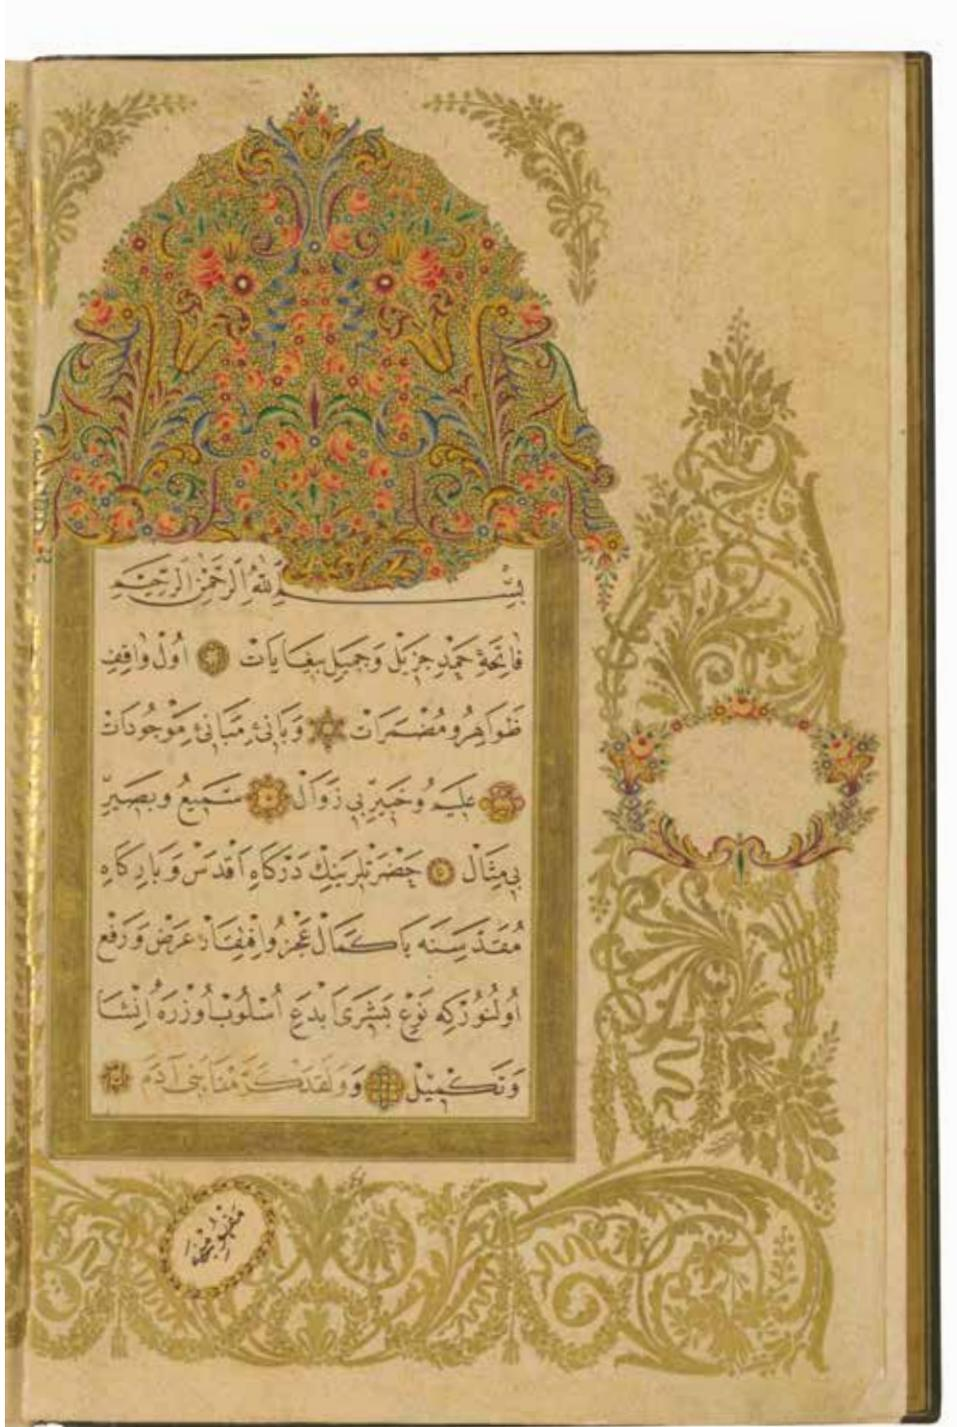 بِسْمِ اللّٰهِ الرَّحْمٰنِ الرَّحِيمِ
فَاتِحَهٔ حَمْدِ جَزِيلْ وَجَمِيلِ بِيغَايَاتْ اُولْ وَاقِفِ
ظَوَاهِرُو مُضْمَرَاتْ وَبَانِیِٔ مَبَانِیِٔ مَوْجُودَاتْ
عَلِيمُ وخَبِيرِ بِي زَوَالْ سَمِيعُ وبَصِيرِ
بِي مِثَالْ حَضْرَتْلَرِينِكْ دَرْكَاهِ اَقْدَسْ وَبَارِكَاهِ
مُقَدَّسِنَه بَاكَمَالْ عَجْزُ وافْتِقَارْ عَرْضْ وَرَفْع
اُولُنُورْكِه نَوْعِ بَشَرِى اَبْدَعِ اُسْلُوبْ اُوزْرَه اِنْشَا
وَتَكْمِيلْ وَ وَلَقَدْ كَرَّمْنَا بَنِى آدَمَ